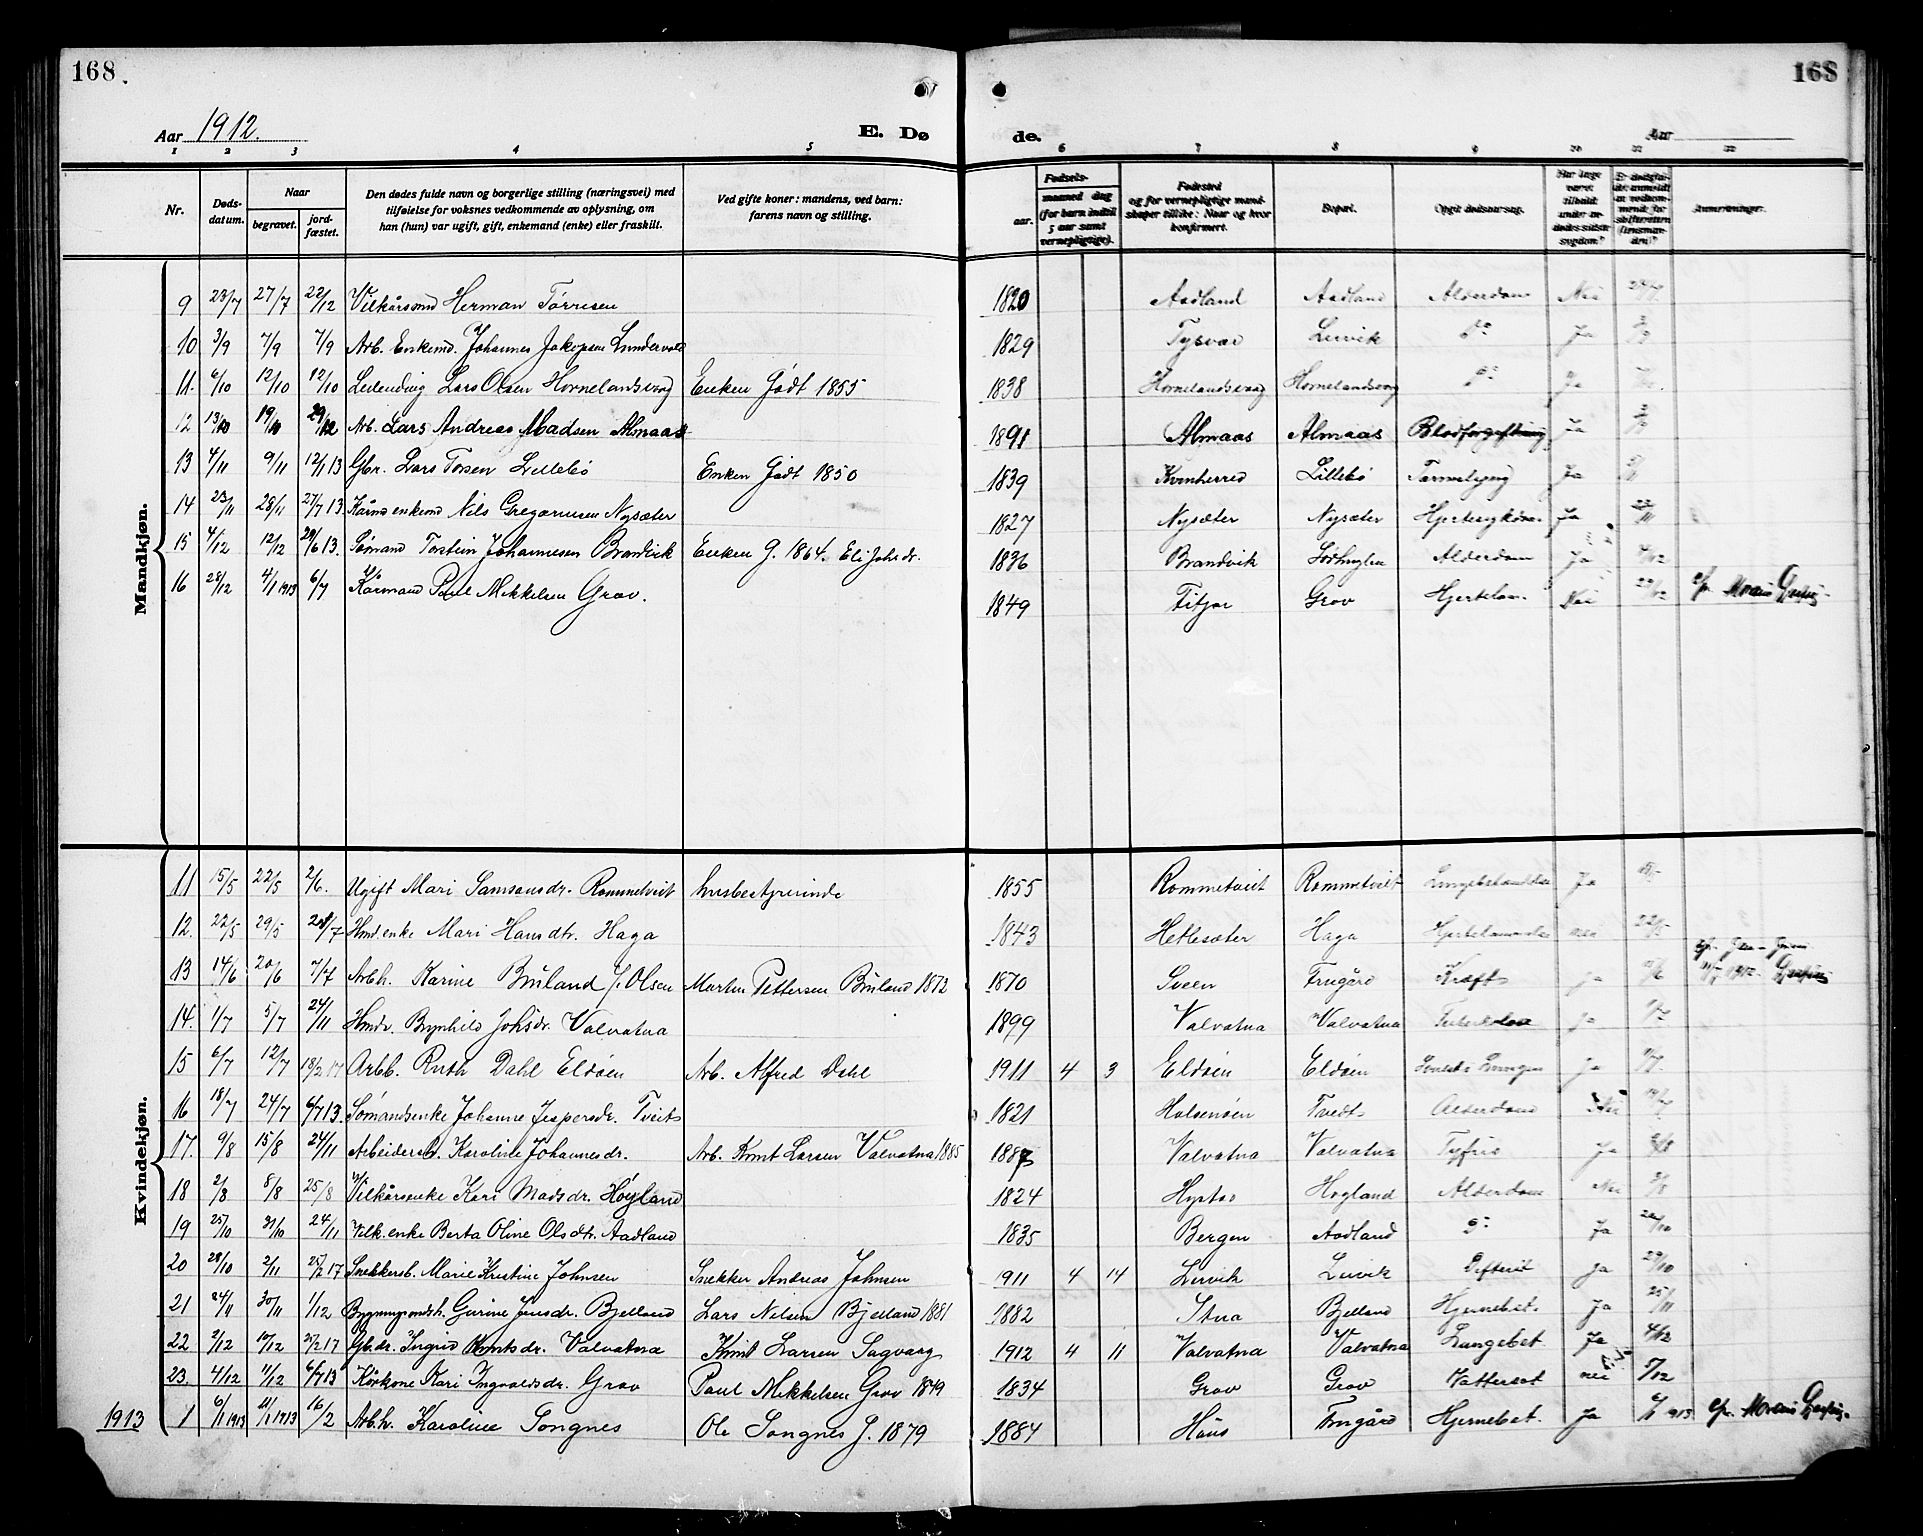 168. 168
Aar 1912. E. Dø de. Aar
1 2 3 4 5 6 7 8 9 10 11 12
Nr. Døds-datum. Naar begravet. jord-fæstet. Den dødes fulde navn og borgerlige stilling (næringsvei) med tilføielse for voksnes vedkommende av oplysning, om han (hun) var ugift, gift, enkemand (enke) eller fraskilt. Ved gifte koner: mandens, ved barn: farens navn og stilling. Fødsels- aar. maaned dag (for barn indtil 5 aar samt vernepligtige). Fødested og for vernepligtige mandskaper tillike: Naar og hvor konfirmert. Bopæl. Opgit dødsaarsag. Har læge været tilkaldt under avdødes sidste sygdom? Er dødsfaldet anmeldt av vedkommende for skifteretten (lensmanden)? Anmerkninger.
Mandkjøn.
9 23/7 27/7 22/12 Vilkårsmd Herman Tørresen 1820 Aadland Aadland Alderdom Nei
10 3/9 7/9 7/9 Arb. Enkemd. Johannes Jakopsen Lundervold 1829 Tysvær Lervik Do Ja
11. 6/10 12/10 12/10 Leilending Lars Olsen Hornelandsvag Enken Født 1855 1838 Hornelandsvag Hornelandsvag Do Ja
12 13/10 19/10 29/12 Arb. Lars Andreas Madsen Almaas 1891 Almaas Almaas Blodforgiftning Ja
13 4/11 9/11 12/1 13 Gbr. Lars Torsen Lillebø Enken Født 1850 1839 Kvinherred Lillebø Ja
14 23/11 28/11 27/7 13. Kårmd enkemd Nils Gregoriussen Nysæter 1827 Nysæter Nysæter Hjertesykdom Ja
15 4/12 12/12 29/6 13. Sømand Torstein Johannesen Brandvik Enken G. 1864. Eli Johsdr. 1836 Brandvik Alderdom Ja 4/12
16 28/12 4/1 1913 6/7 Kårmand Paul Mikkelsen Grov. 1849 Fitjar Grov Nei
Kvindekjøn.
11 15/5 22/5 2/6. Ugift Mari Samsonsdr. Rommetveit husbestyrerinde 1855 Rommetveit Rommetveit Ja
12. 22/5 29/5 28/7 Hmd. enke Mari Hansdtr. Haga 1843 Hetlesæter Haga nei 22/5
13 14/6 20/6 7/7 Arbh. Karine Buland f. Olsen Martin Pettersen Buland 1872 1870 Sveen Frugård Kræft Ja
14. 1/7 5/7 24/11 Hmdr. Brynhild Johsdr. Valvatna 1899 Valvatna Valvatna Ja
15 6/7 12/7 18/2 17 Arbb. Ruth Dahl Eldøen Arb. Alfred Dahl 1911 4 3 Eldøen Eldøen Ja
16 18/7 24/7 6/7 13. Sømandsenke Johanne Jespersdr. Tveit 1821 Halsenøen Tvedt Alderdom Nei
17. 9/8 15/8 24/11 Karoline Johannesdr. Arb. Knut Larsen Valvatna 1885 1887 Valvatna Valvatna Tyfus Ja
18 2/8 8/8 25/8 Vilkårsenke Kari Madsdr. Høyland 1824 Høyland Alderdom Nei
19 25/10 31/10 24/11 Vilk. enke Berta Oline Olsdtr. Aadland 1835 Bergen Aadland Do Ja
20 28/10 2/11 25/2 17 Snekkersb. Marie Kristine Johnsen Snekker Andreas Johnsen 1911 4 14 Lervik Lervik Difteri Ja 29/10
21 24/11 30/11 1/12 Gurine Jensdr. Bjelland Lars Nilsen Bjelland 1881 1882 Stua Bjelland Hjernebet. Ja 25/11
22 2/12 17/12 25/2 17 Gb. dr. Ingrid Knutsdr. Valvatna Knut Larsen Sagvaag 1912 4 11 Valvatna Valvatna Lungebet. Ja 4/12
23. 4/12 11/12 6/7 13 Kårkone Kari Ingvaldsdr. Grov Paul Mikkelsen Grov 1849 1834 Grov Grov Vattersot nei 5/12
1913 1 6/1 1913 11/1 1913 16/2 Arb.h. Karoline Songnes Ole Songnes f. 1879 1884 Haus Frugård Hjernebet. Ja 6/1 1913.